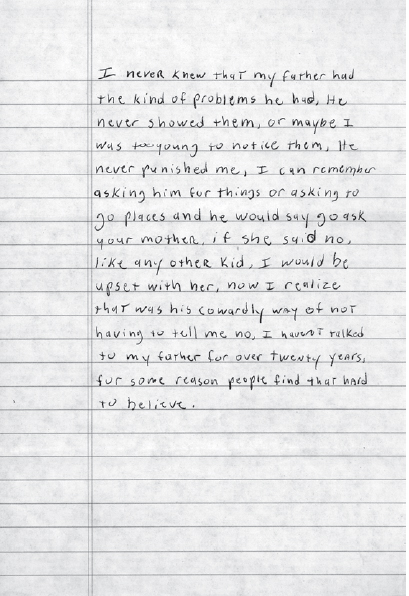 I never knew that my father had
the kind of problems he had, He
never showed them, or maybe I
was too young to notice them, He
never punished me, I can remember
asking him for things or asking to
go places and he would say go ask
your mother, if she said no,
like any other kid, I would be
upset with her, now I realize
that was his cowardly way of not
having to tell me no, I haven't talked
to my father for over twenty years,
for some reason people find that hard
to believe.